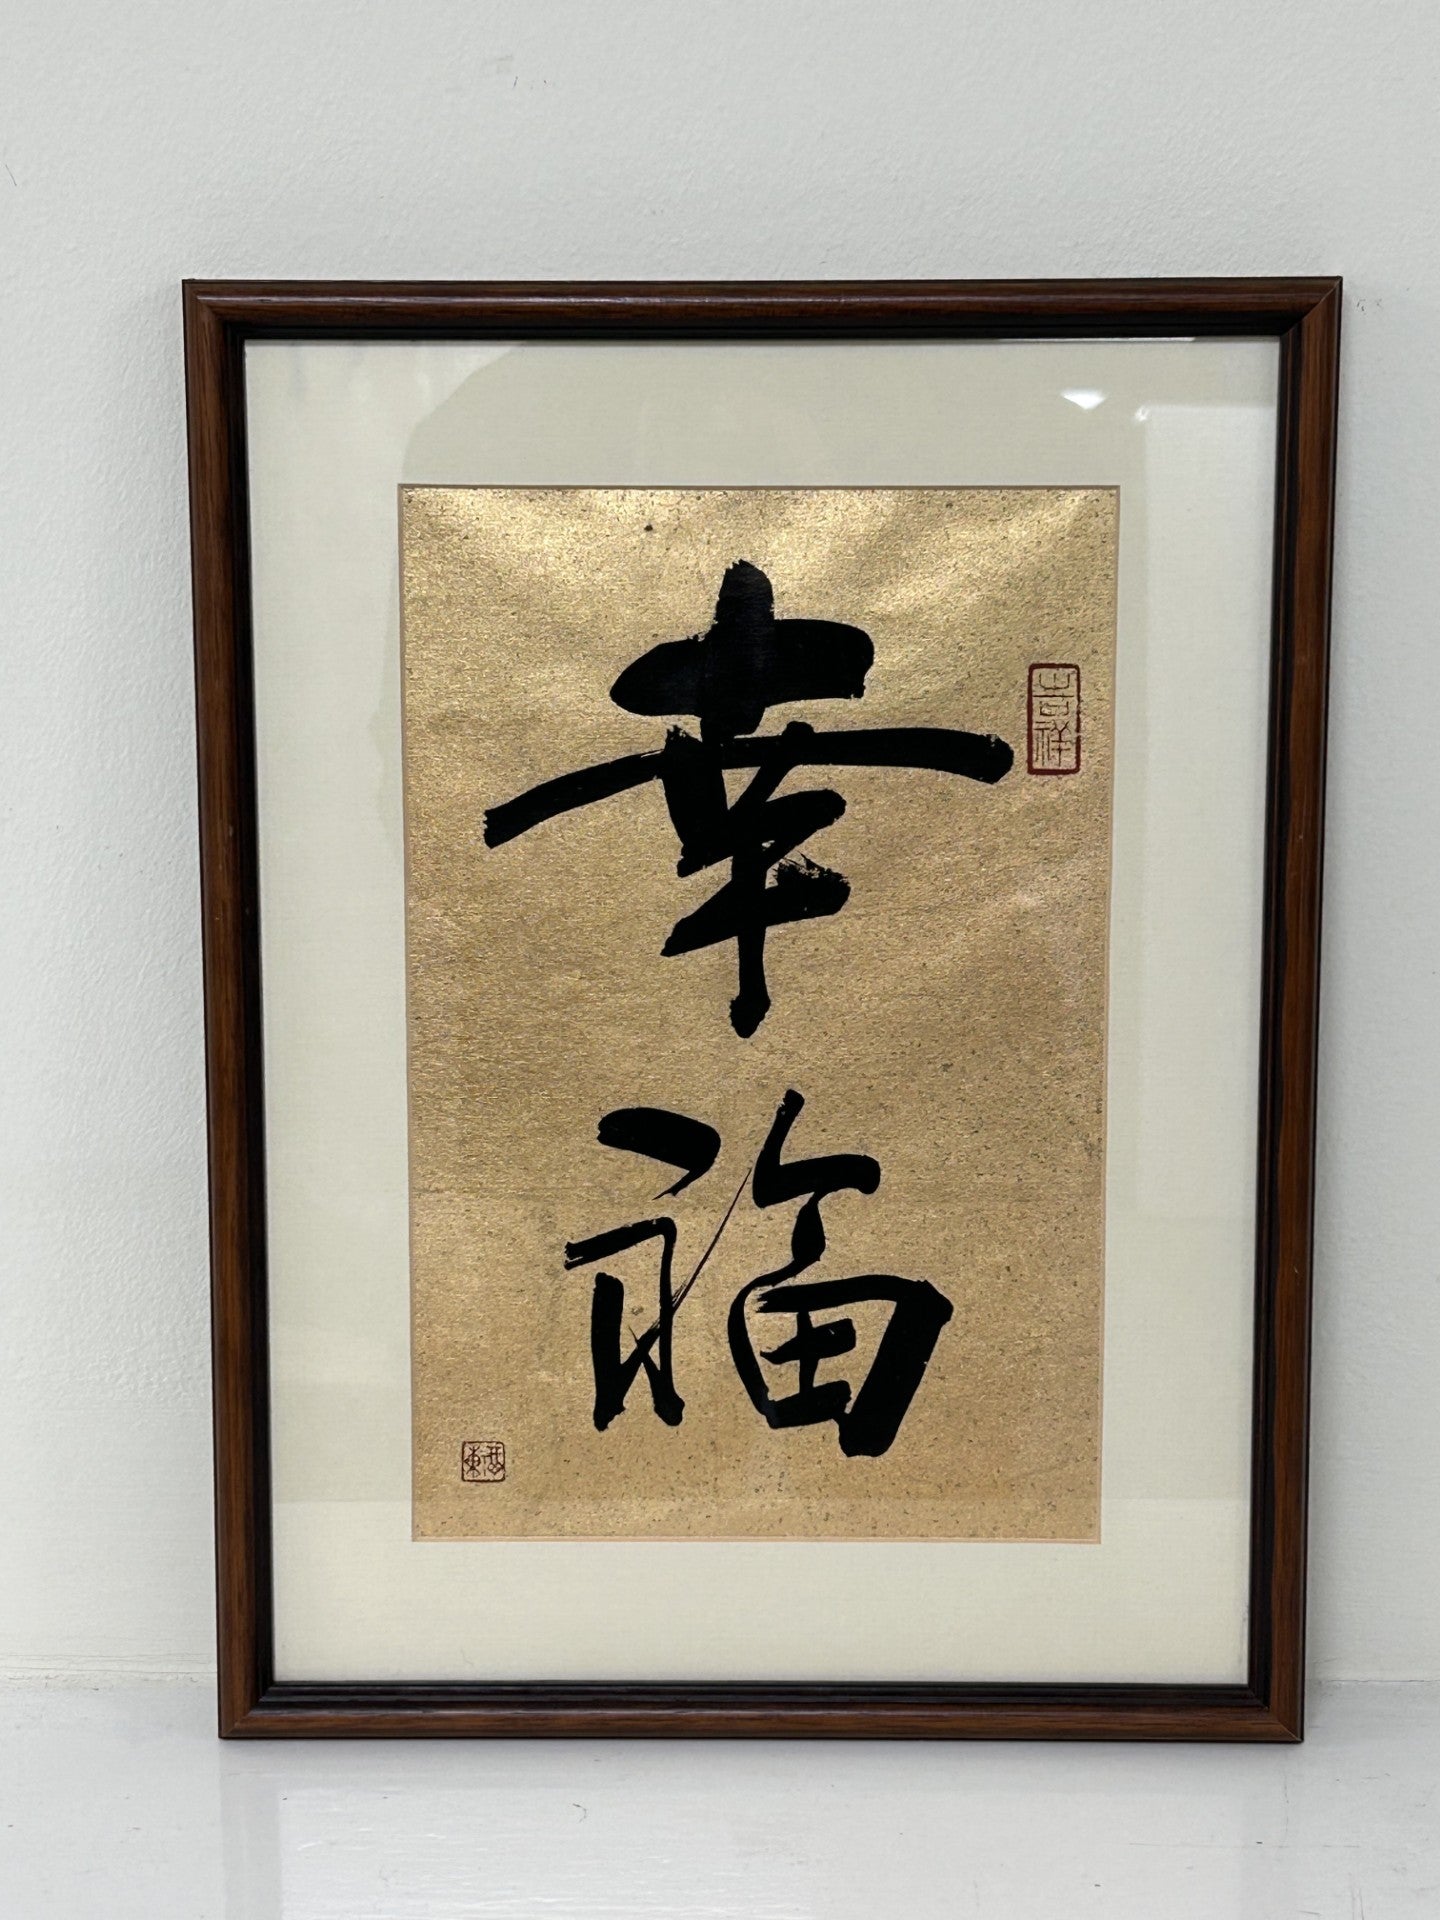 幸福
吉祥